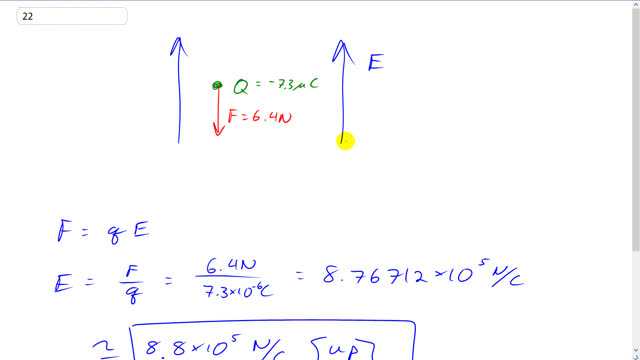 22
E
Q = -7.3 μC
F = 6.4N
F = q E
E = F/q = 6.4N / 7.3×10⁻⁶C = 8.76712×10⁵ N/C
≈ 8.8×10⁵ N/C [up]